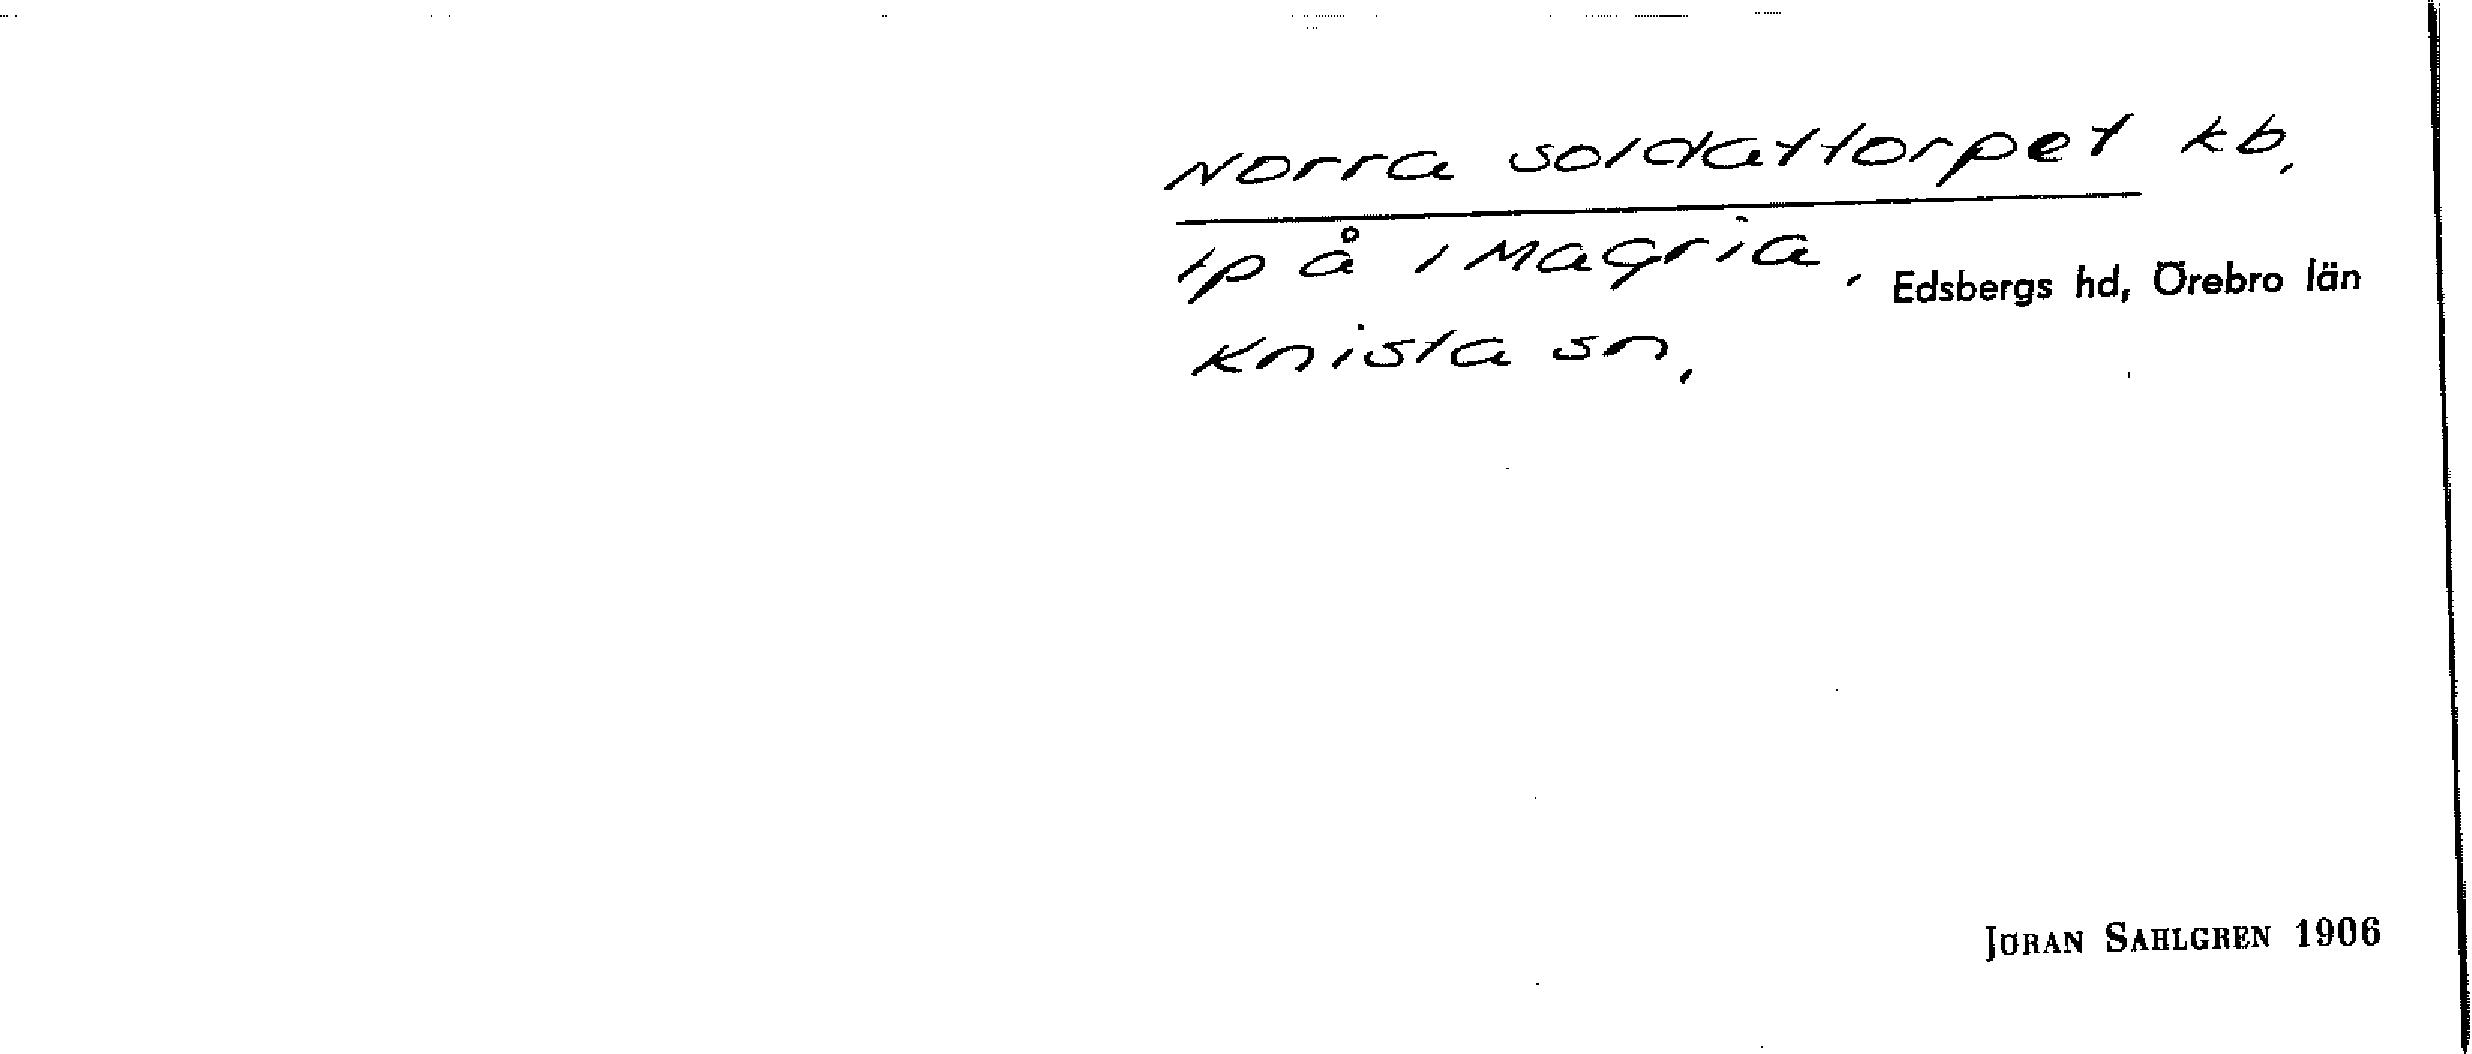 Norra soldattorpet kb,
tp å 1 Magria,
Edsbergs hd, Örebro län
Knista sn,
JÖRAN SAHLGREN 1906